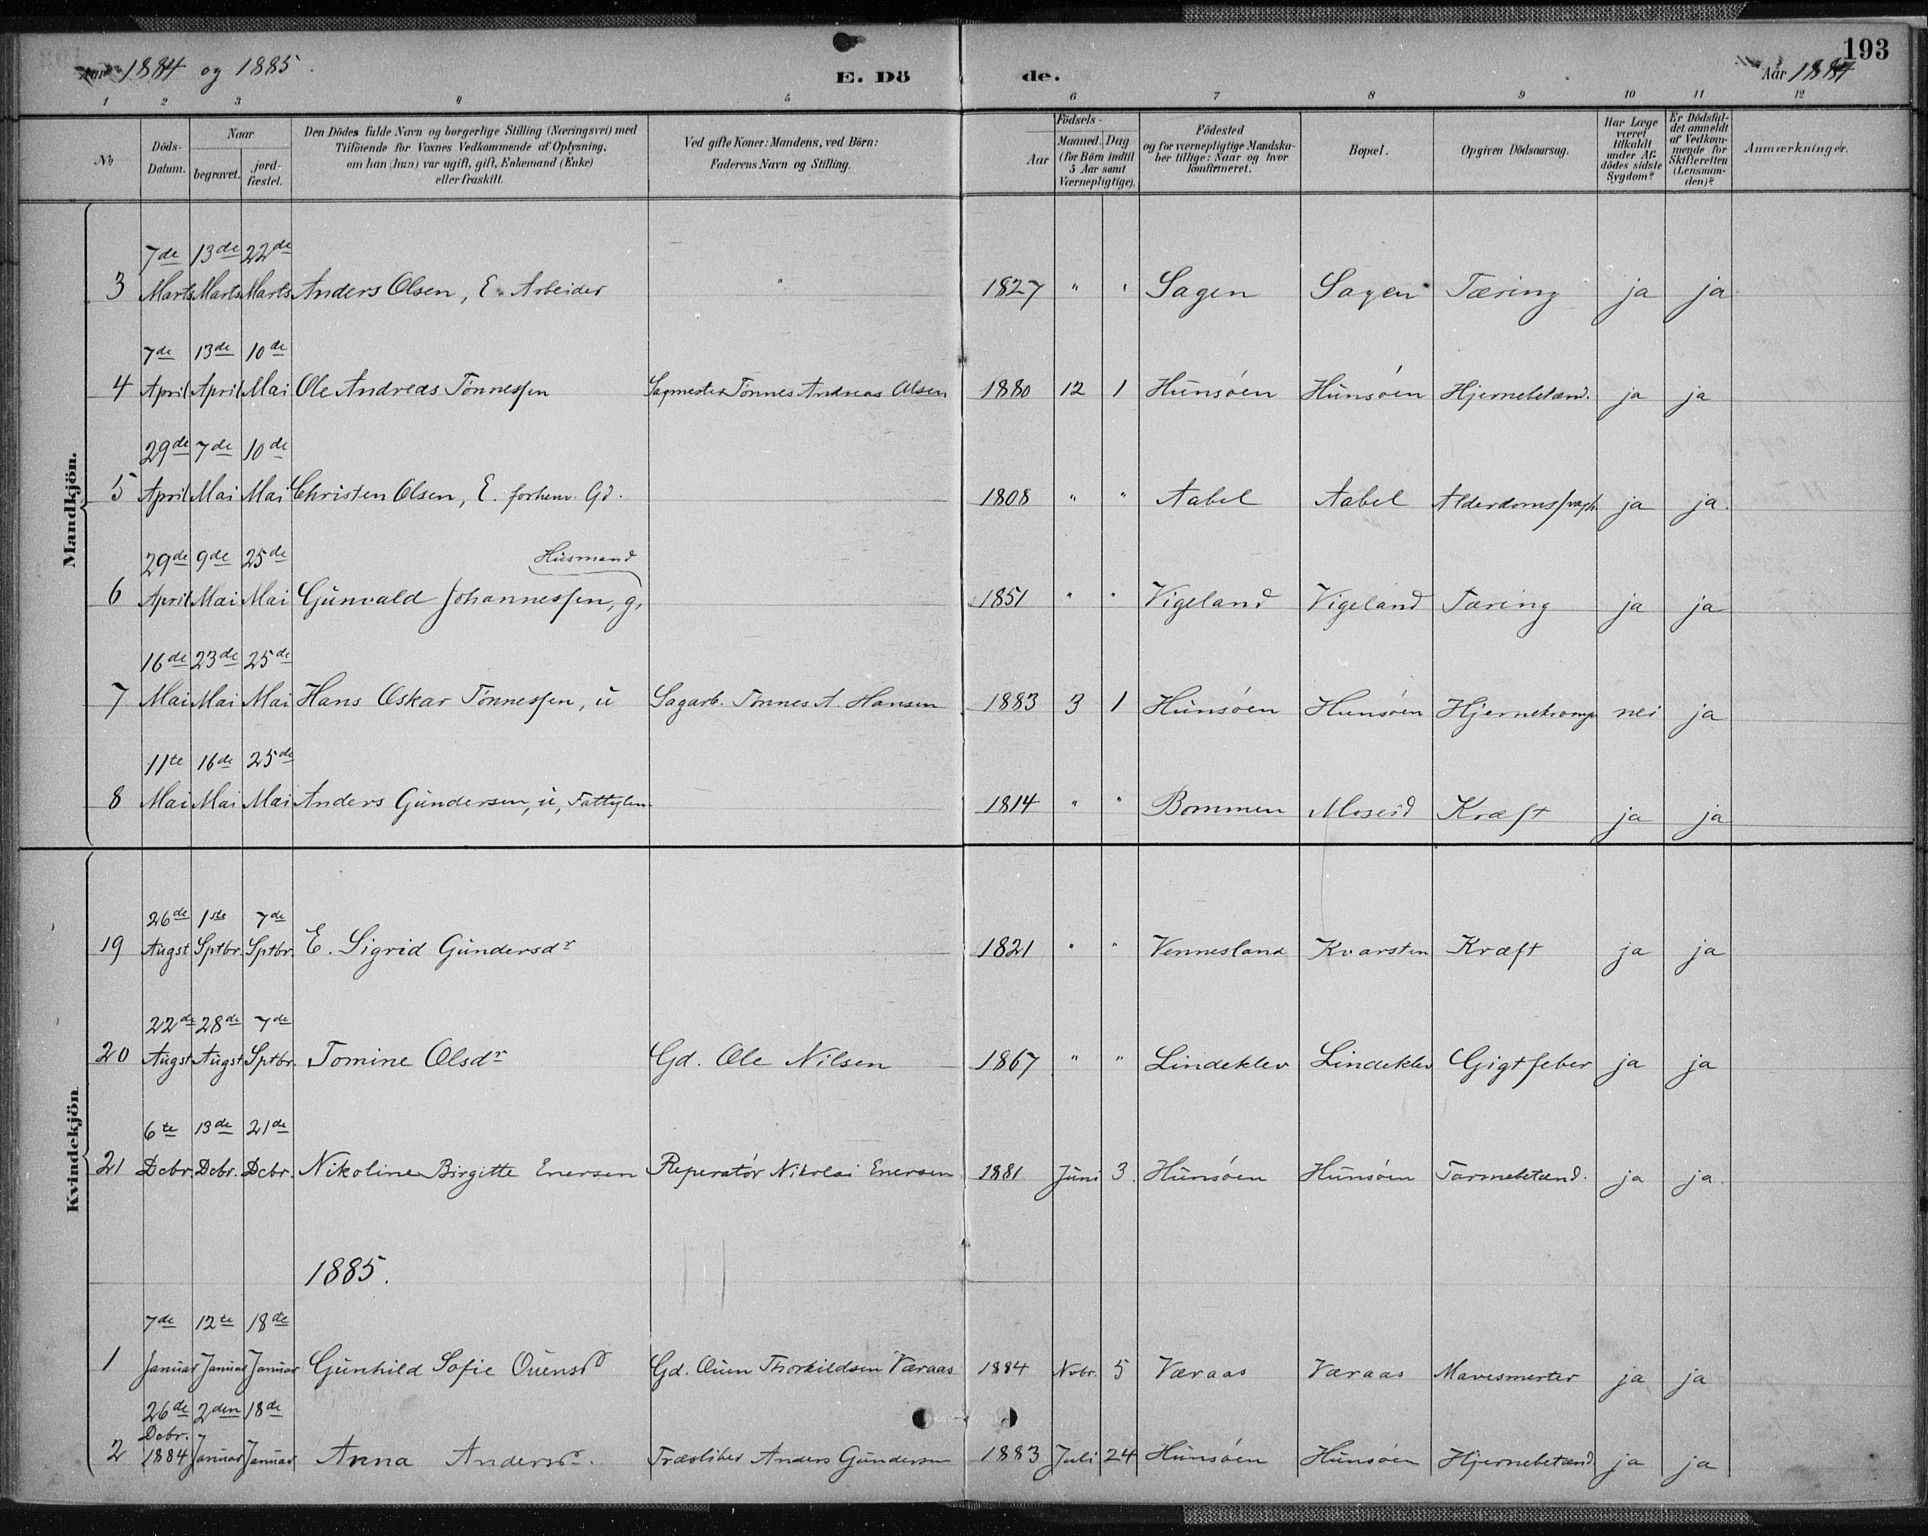 193
Aar 1884 og 1885. E. Dö de. Aar 1884
1 2 3 4 5 6 7 8 9 10 11 12
No
Döds-Datum.
Naar
begravet.
jord-fæstet.
Den Dödes fulde Navn og borgerlige Stilling (Næringsvei) med
Tilföiende for Voxnes Vedkommende af Oplysning,
om han (hun) var ugift, gift, Enkemand (Enke)
eller fraskilt.
Ved gifte Koner: Mandens, ved Börn:
Faderens Navn og Stilling.
Födsels-
Aar
Maaned. Dag
(for Börn indtil
5 Aar samt
Værnepligtige).
Födested
og for værnepligtige Mandska-
ber tillige: Naar og hvor
konfirmeret.
Bopæl.
Opgiven Dödsaarsag.
Har Læge
været
tilkaldt
under Af-
dödes sidste
Sygdom?
Er Dödsfal-
det anmeldt
af Vedkom-
mende for
Skifteretten
(Lensman-
den)?
Anmærkninger.
Mandkjön.
7de 13de 22de
3 Marts Marts Marts Anders Olsen, E. Arbeider " 1827 " " Sagen Sagen Tæring ja ja
7de 13de 10de
4 April April Mai Ole Andreas Tønnessen Sagmester Tønnes Andreas Olsen 1880 12 1 Hunsøen Hunsøen Hjernebetænd. ja ja
29de 7de 10de
5 April Mai Mai Christen Olsen, E. forhenv. Gd. 1808 " " Aabel Aabel ja ja.
29de 9de 25de Husmand
6 April Mai Mai Gunvald Johannessen, g. 1851 " " Vigeland Vigeland Tæring ja ja
16de 23de 25de
7 Mai Mai Mai Hans Oskar Tønnessen, u Sagarb. Tønnes A. Hansen 1883 3 1 Hunsøen Hunsøen Hjernekramp nei ja
11te 16de 25de
8 Mai Mai Mai Anders Gundersen, u, Fattiglem 1814 " " Bommen Moseid Kræft ja ja
Kvindekjön
26de 1ste 7de
19 Augst Sptbr. Sptbr. E. Sigrid Gundersdr 1821 " " Vennesland Kvarsten Kræft ja ja
22de 28de 7de
20 Augst Augst Sptbr. Tomine Olsdr Gd. Ole Nilsen 1867 " " Lindeklev Lindeklev Gigtfeber ja ja
6te 13de 21de
21 Dcbr. Dcbr. Dcbr. Nikoline Birgitte Enersen Reperatør Nikolai Enersen 1881 Juni 3 Hunsøen Hunsøen Tarmebetænd. ja ja.
1885.
7de 12te 18de
1 Januar Januar Januar Gunhild Sofie Ouensd Gd. Ouen Thorkildsen Væraas 1884 Nvbr. 5 Væraas Væraas Mavesmerter ja ja
26de 2den 18de
Dcbr.
2 1884 Januar Januar Anna Andersd. Træsliber Anders Gundersen 1883 Juli 24 Hunsøen Hunsøen Hjernebetænd ja ja